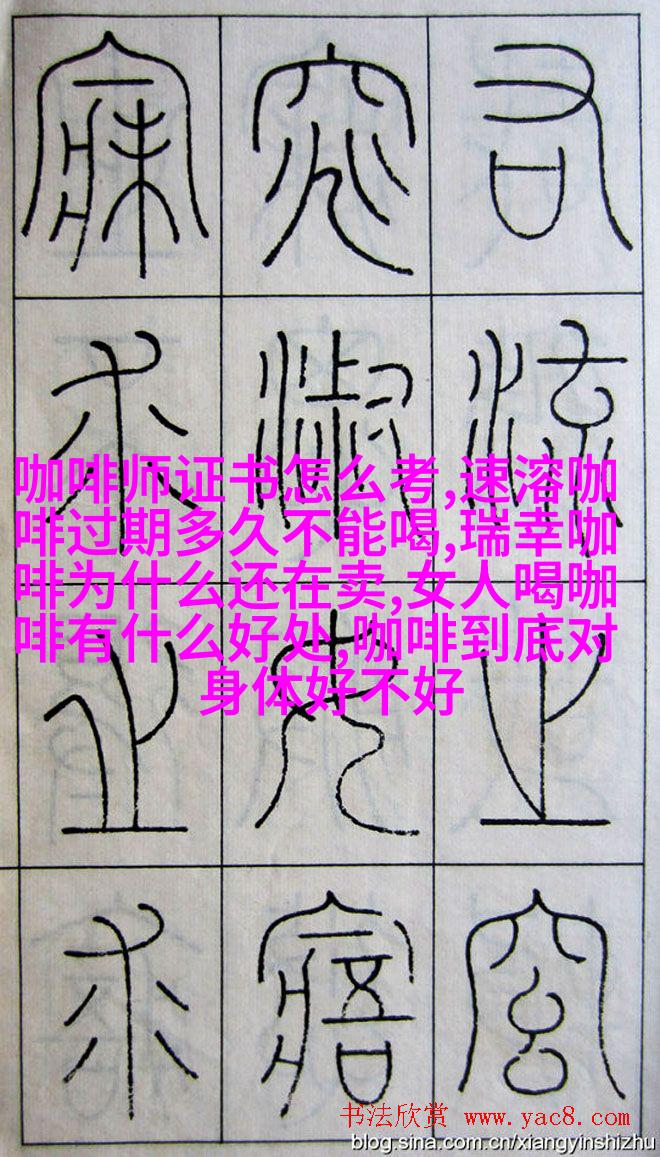 右流之窈
窕淑女寤
寐求之求
咖啡师证书怎么考,速溶咖
啡过期多久不能喝,瑞幸咖
啡为什么还在卖,女人喝咖
啡有什么好处,咖啡到底对
身体好不好
书法欣赏 www.yac8.com
blog.sina.com.cn/xiangyinshizhu